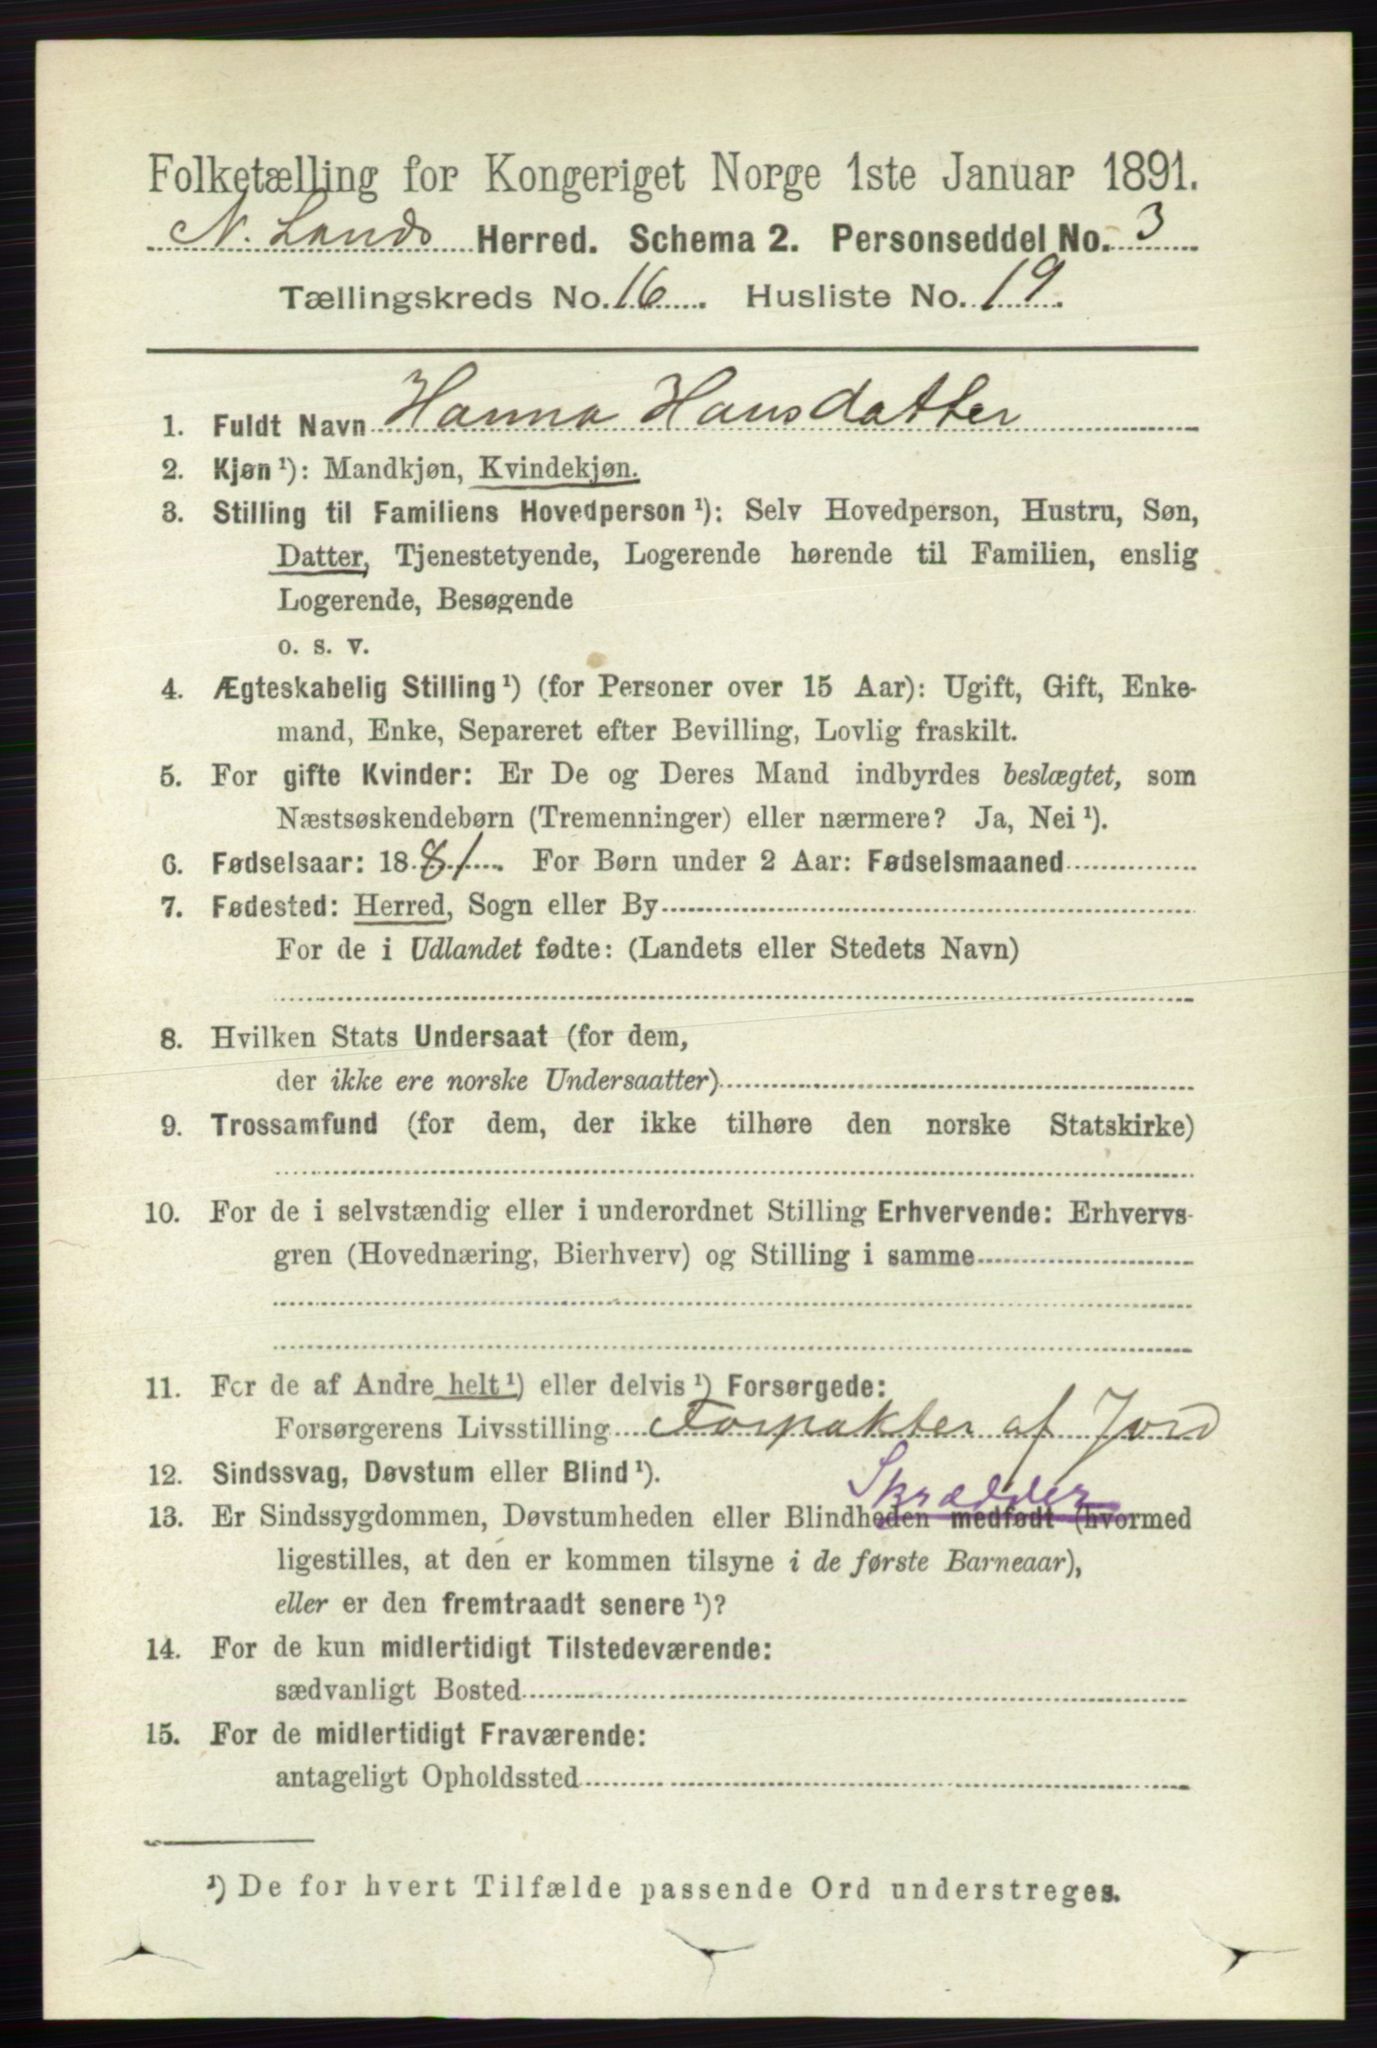 Folketælling for Kongeriget Norge 1ste Januar 1891.
N. Lands Herred. Schema 2. Personseddel No. 3
Tællingskreds No. 16. Husliste No. 19.
1. Fuldt Navn Hanna Hansdatter
2. Kjøn ¹): Mandkjøn, Kvindekjøn.
3. Stilling til Familiens Hovedperson ¹): Selv Hovedperson, Hustru, Søn,
Datter, Tjenestetyende, Logerende hørende til Familien, enslig
Logerende, Besøgende
o. s. v.
4. Ægteskabelig Stilling ¹) (for Personer over 15 Aar): Ugift, Gift, Enke-
mand, Enke, Separeret efter Bevilling, Lovlig fraskilt.
5. For gifte Kvinder: Er De og Deres Mand indbyrdes beslægtet, som
Næstsøskendebørn (Tremenninger) eller nærmere? Ja, Nei ¹).
6. Fødselsaar: 1881. For Børn under 2 Aar: Fødselsmaaned
7. Fødested: Herred, Sogn eller By
For de i Udlandet fødte: (Landets eller Stedets Navn)
8. Hvilken Stats Undersaat (for dem,
der ikke ere norske Undersaatter)
9. Trossamfund (for dem, der ikke tilhøre den norske Statskirke)
10. For de i selvstændig eller i underordnet Stilling Erhvervende: Erhvervs-
gren (Hovednæring, Bierhverv) og Stilling i samme
11. For de af Andre helt ¹) eller delvis ¹) Forsørgede:
Forsørgerens Livsstilling Forpakter af Jord
12. Sindssvag, Døvstum eller Blind ¹). Skrædder
13. Er Sindssygdommen, Døvstumheden eller Blindheden medfødt (hvormed
ligestilles, at den er kommen tilsyne i de første Barneaar),
eller er den fremtraadt senere ¹)?
14. For de kun midlertidigt Tilstedeværende:
sædvanligt Bosted
15. For de midlertidigt Fraværende:
antageligt Opholdssted
¹) De for hvert Tilfælde passende Ord understreges.